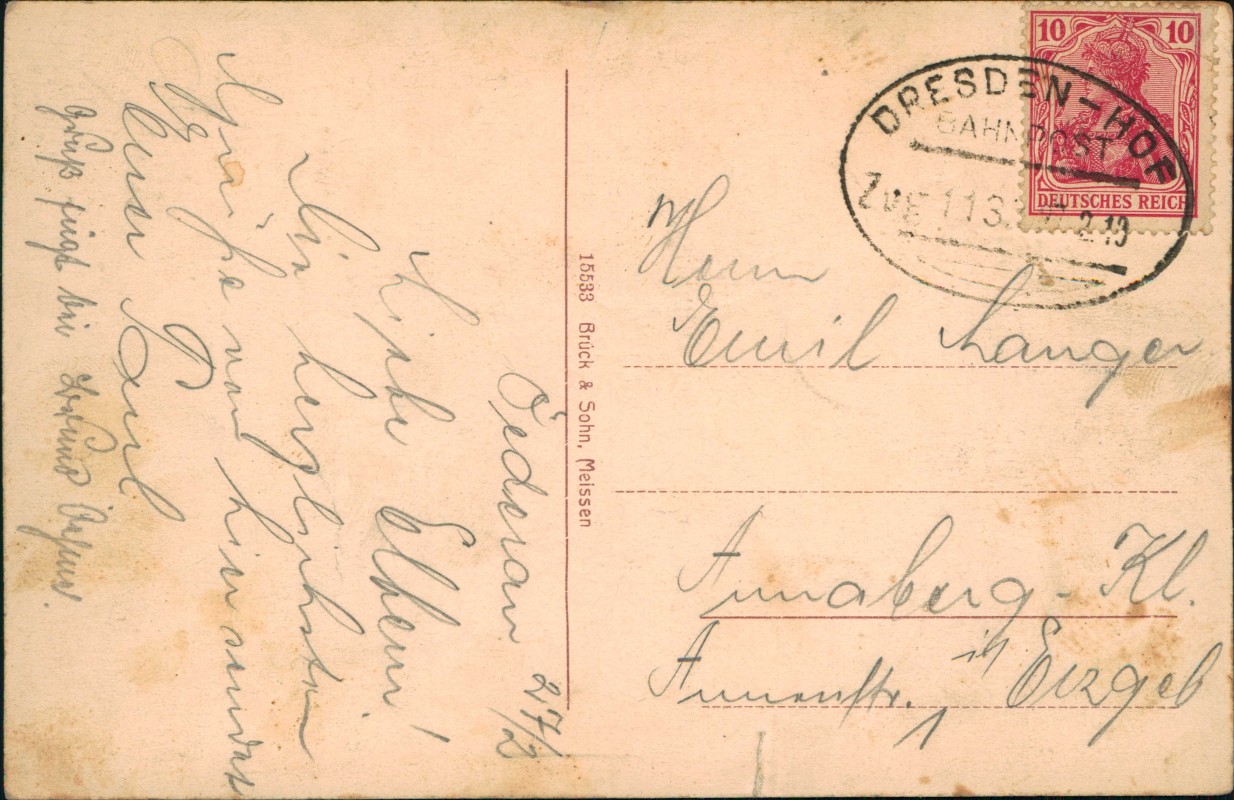 Oederan 27/2
Liebe Eltern!
Die herzlichsten
Grüße von hier sendet
Euer Paul
Gruß fügt bei
15533 Brück & Sohn, Meissen
10 10
DEUTSCHES REICH
DRESDEN-HOF
BAHNPOST
ZUG 113 2 13
Herrn
Emil Langer
Annaberg-Kl.
in Erzgeb
Annenstr. 1